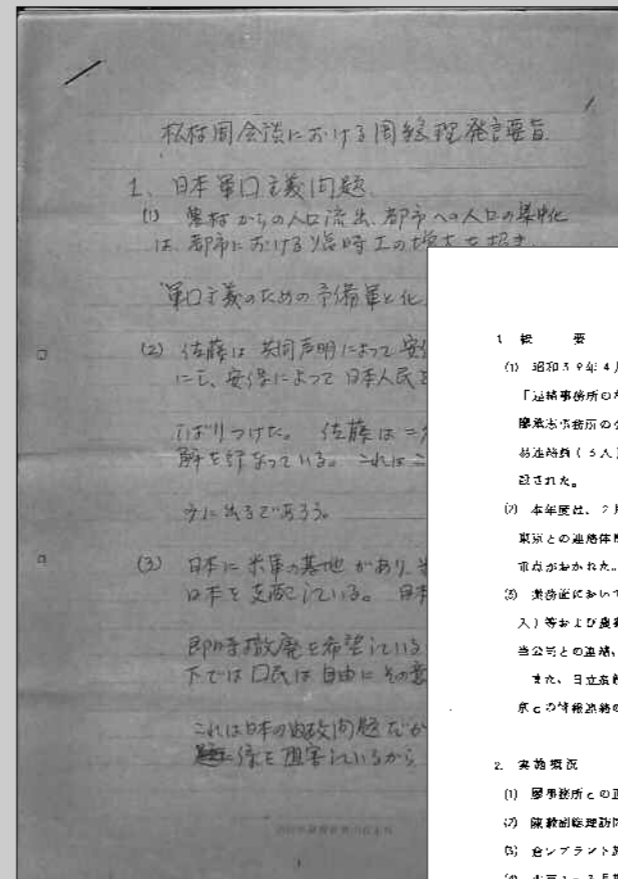 松村周会談における周総理発言要旨
1. 日本軍口主義问題
(1) 農村からの人口流出、都市への人口の集中化
は、都市における臨時工の増大を招き、
軍口主義のための予備軍と化
(2) 佐藤は共同声明によって安
によって日本人民を
しばりつけた。 佐藤は二
解を行なっている。 これはこ
うに出るであろう。
(3) 日本に米軍の基地があり、米
日本を支配している。 日本
即時撤廃を希望している
下では口民は自由にその意
これは日本の内政问題だが
係を阻害しているから
1
1 概 要
(1) 昭和39年4月
「連絡事務所の
廖承志事務所の
易連絡員(5人)
設された。
(2) 本年度は、2月
東京との連絡体
重点がおかれた。
(3) 業務面において
入)等および農
当公司との連絡、
また、日立
京との情報連絡の
2. 実施概況
(1) 廖事務所との
(2) 陳毅副総理訪
(3) 倉レプラント